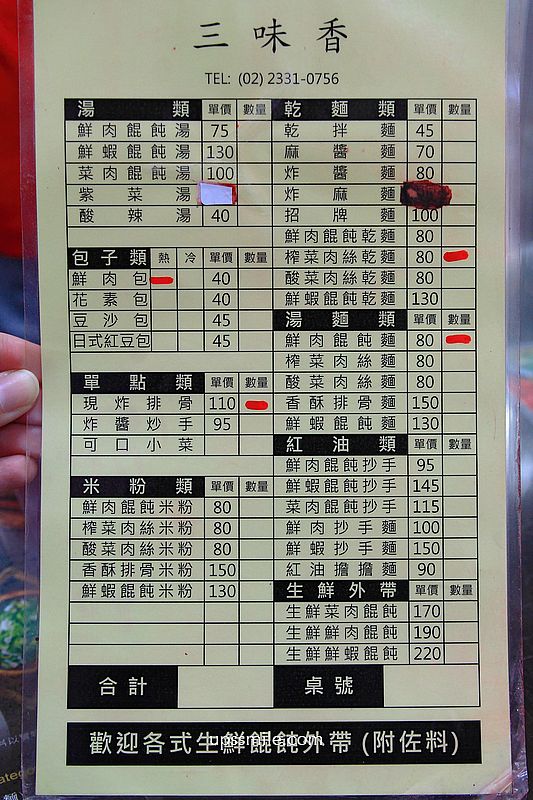 三味香
TEL: (02) 2331-0756
湯類 單價 數量
鮮肉餛飩湯 75
鮮蝦餛飩湯 130
菜肉餛飩湯 100
紫菜湯
酸辣湯 40
包子類 熱 冷 單價 數量
鮮肉包 40
花素包 40
豆沙包 45
日式紅豆包 45
單點類 單價 數量
現炸排骨 110
炸醬炒手 95
可口小菜
米粉類 單價 數量
鮮肉餛飩米粉 80
榨菜肉絲米粉 80
酸菜肉絲米粉 80
香酥排骨米粉 150
鮮蝦餛飩米粉 130
乾麵類 單價 數量
乾拌麵 45
麻醬麵 70
炸醬麵 80
炸麻麵
招牌麵 100
鮮肉餛飩乾麵 80
榨菜肉絲乾麵 80
酸菜肉絲乾麵 80
鮮蝦餛飩乾麵 130
湯麵類 單價 數量
鮮肉餛飩麵 80
榨菜肉絲麵 80
酸菜肉絲麵 80
香酥排骨麵 150
鮮蝦餛飩麵 130
紅油類 單價 數量
鮮肉餛飩抄手 95
鮮蝦餛飩抄手 145
菜肉餛飩抄手 115
鮮肉抄手麵 100
鮮蝦抄手麵 150
紅油擔擔麵 90
生鮮外帶 單價 數量
生鮮菜肉餛飩 170
生鮮鮮肉餛飩 190
生鮮鮮蝦餛飩 220
合計 桌號
歡迎各式生鮮餛飩外帶(附佐料)
upssmile.com